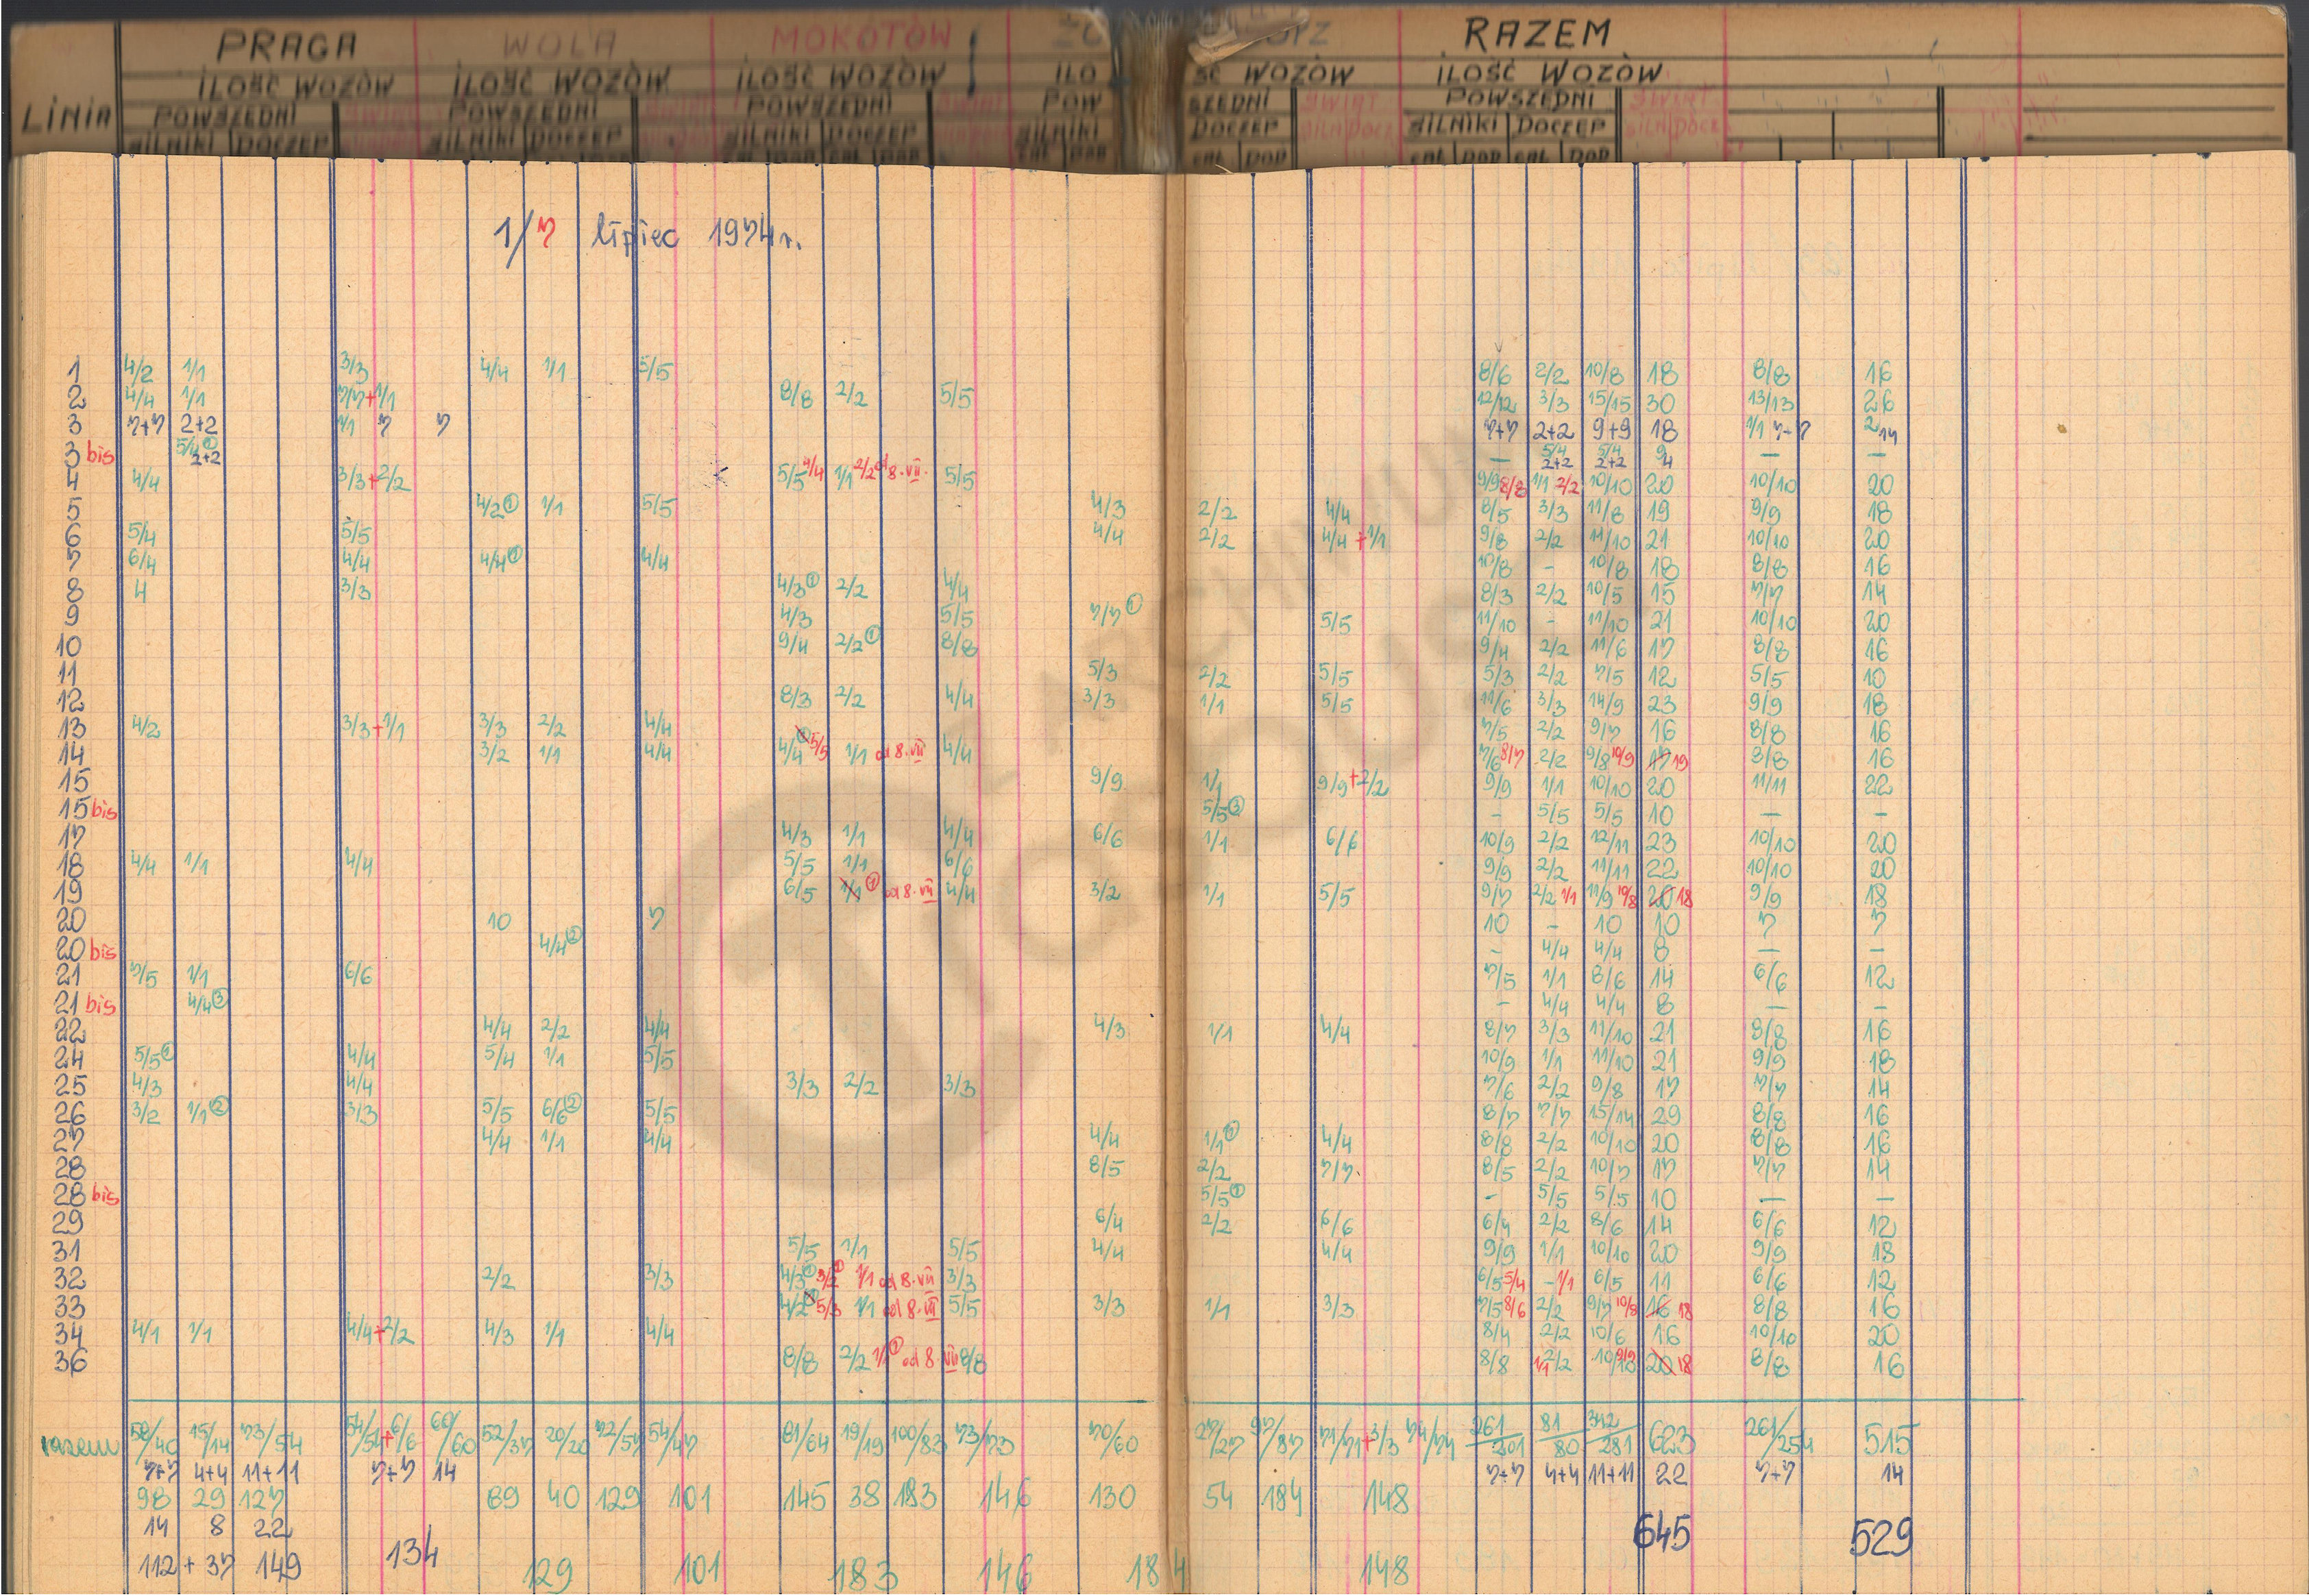 PRAGA WOLA MOKOTÓW RAZEM
ILOŚĆ WOZÓW ILOŚĆ WOZÓW ILOŚĆ WOZÓW ILOŚĆ WOZÓW ILOŚĆ WOZÓW
LINIA POWSZEDNI POWSZEDNI POWSZEDNI POWSZEDNI ŚWIĄT POWSZEDNI ŚWIĄT
SILNIKI DOCZEP SILNIKI DOCZEP SILNIKI DOCZEP SILNIKI DOCZEP SILN DOCZ SILNIKI DOCZEP SILN DOCZ
CAŁ DOD CAŁ DOD CAŁ DOD
1/7 lipiec 1974 r.
1 4/2 1/1 3/3 4/4 1/1 5/5 8/6 2/2 10/8 18 8/8 16
2 4/4 1/1 7/7+1/1 8/8 2/2 5/5 12/12 3/3 15/15 30 13/13 26
3 7+7 2+2 1/1 7 7 7+7 2+2 9+9 18 1/1 7+7 2 14
3 bis 5/4 ① 2+2 — 5/4 2+2 5/4 2+2 9 4 — —
4 4/4 3/3+2/2 5/5 4/4 1/1 2/2 od 8.VII. 5/5 9/9 8/8 1/1 2/2 10/10 20 10/10 20
5 4/2 ① 1/1 5/5 4/3 2/2 4/4 8/5 3/3 11/8 19 9/9 18
6 5/4 5/5 4/4 2/2 4/4+1/1 9/8 2/2 11/10 21 10/10 20
7 6/4 4/4 4/4 ① 4/4 10/8 - 10/8 18 8/8 16
8 4 3/3 4/3 ① 2/2 4/4 8/3 2/2 10/5 15 7/7 14
9 4/3 5/5 7/7 ① 5/5 11/10 - 11/10 21 10/10 20
10 9/4 2/2 ① 8/8 9/4 2/2 11/6 17 8/8 16
11 5/3 2/2 5/5 5/3 2/2 7/5 12 5/5 10
12 8/3 2/2 4/4 3/3 1/1 5/5 11/6 3/3 14/9 23 9/9 18
13 4/2 3/3+1/1 3/3 2/2 4/4 7/5 2/2 9/7 16 8/8 16
14 3/2 1/1 4/4 4/4 5/5 1/1 od 8.VII 4/4 7/6 8/7 2/2 9/8 10/9 17 19 8/8 16
15 9/9 1/1 9/9+2/2 9/9 1/1 10/10 20 11/11 22
15 bis 5/5 ③ - 5/5 5/5 10 — -
17 4/3 1/1 4/4 6/6 1/1 6/6 10/9 2/2 12/11 23 10/10 20
18 4/4 1/1 4/4 5/5 1/1 6/6 9/9 2/2 11/11 22 10/10 20
19 6/5 1/1 ① od 8.VII 4/4 3/2 1/1 5/5 9/7 2/2 1/1 11/9 10/8 20 18 9/9 18
20 10 7 10 - 10 10 7 7
20 bis 4/4 ② - 4/4 4/4 8 — -
21 7/5 1/1 6/6 7/5 1/1 8/6 14 6/6 12
21 bis 4/4 ③ - 4/4 4/4 8 — -
22 4/4 2/2 4/4 4/3 1/1 4/4 8/7 3/3 11/10 21 8/8 16
24 5/5 ① 4/4 5/4 1/1 5/5 10/9 1/1 11/10 21 9/9 18
25 4/3 4/4 3/3 2/2 3/3 7/6 2/2 9/8 17 7/7 14
26 3/2 1/1 ② 3/3 5/5 6/6 ② 5/5 8/7 7/7 15/14 29 8/8 16
27 4/4 1/1 4/4 4/4 1/1 4/4 8/8 2/2 10/10 20 8/8 16
28 8/5 2/2 7/7. 8/5 2/2 10/7 17 7/7 14
28 bis 5/5 ① - 5/5 5/5 10 — —
29 6/4 2/2 6/6 6/4 2/2 8/6 14 6/6 12
31 5/5 1/1 5/5 4/4 4/4 9/9 1/1 10/10 20 9/9 18
32 2/2 3/3 4/3 ① 3/2 ① 1/1 od 8.VII 3/3 6/5 5/4 - 1/1 6/5 11 6/6 12
33 4/2 5/3 1/1 od 8.VII 5/5 3/3 1/1 3/3 7/5 8/6 2/2 9/7 10/8 16 18 8/8 16
34 4/1 1/1 4/4+2/2 4/3 1/1 4/4 8/4 2/2 10/6 16 10/10 20
36 8/8 2/2 1/1 ① od 8.VII 8/8 8/8 1/1 2/2 10/10 9/9 20 18 8/8 16
razem 58/40 15/14 73/54 54/54+6/6 60/60 52/37 20/20 72/57 54/47 81/64 19/19 100/83 73/73 70/60 27/27 97/87 71/71+3/3 74/74 261/201 81/80 342/281 623 261/254 515
7+7 4+4 11+11 7+7 14 7+7 4+4 11+11 22 7+7 14
98 29 127 89 40 129 101 145 38 183 146 130 54 184 148
14 8 22 645 529
112 + 37 149 134 129 101 183 146 184 148